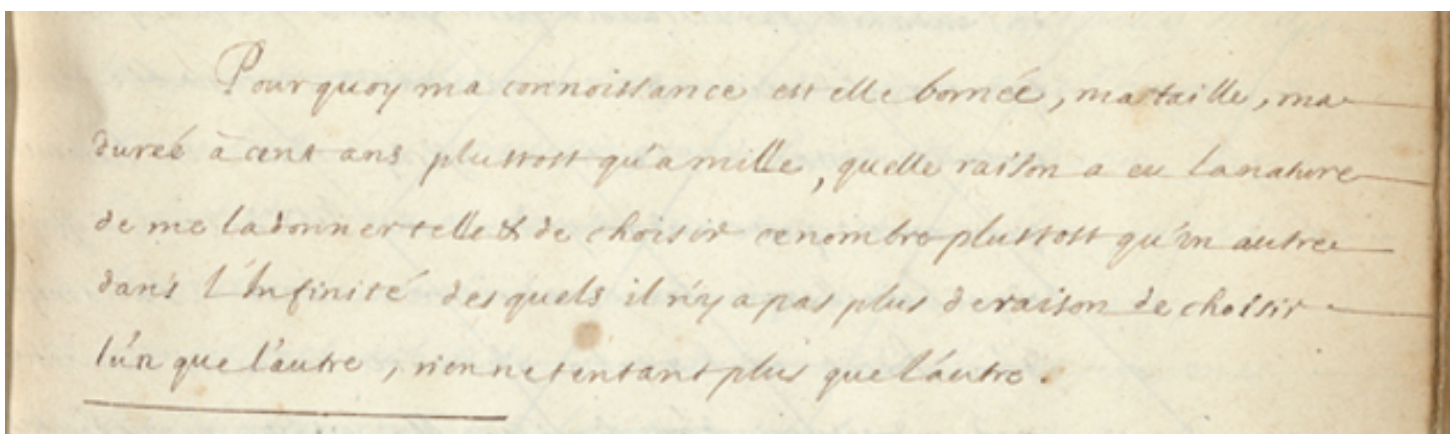 Pourquoy ma connoissance est elle bornée, ma taille, ma
durée à cent ans plustost qu'a mille, quelle raison a eu la nature
de me la donner telle & de choisir ce nombre plustost qu'un autre
dans l'Infinité desquels il n'y a pas plus de raison de choisir
l'un que l'autre, rien ne tentant plus que l'autre.